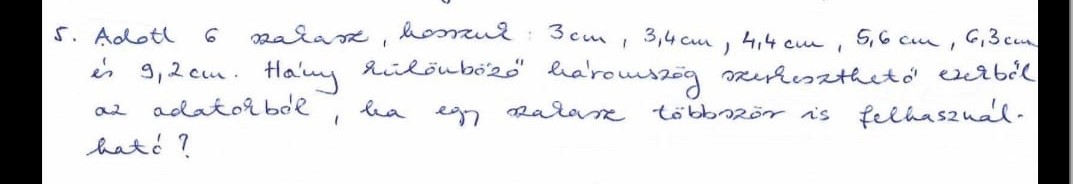 5. Adott 6 szakasz, hosszuk: 3 cm, 3,4 cm, 4,4 cm, 5,6 cm, 6,3 cm
és 9,2 cm. Hány különböző háromszög szerkeszthető ezekből
az adatokból, ha egy szakasz többször is felhasznál-
ható?